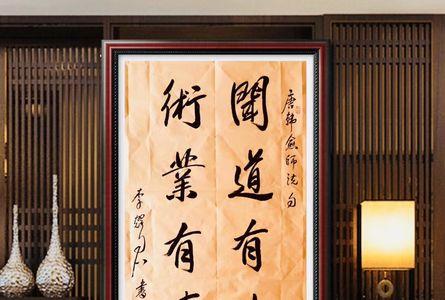 唐韓愈師說句
聞道有
術業有
李 書